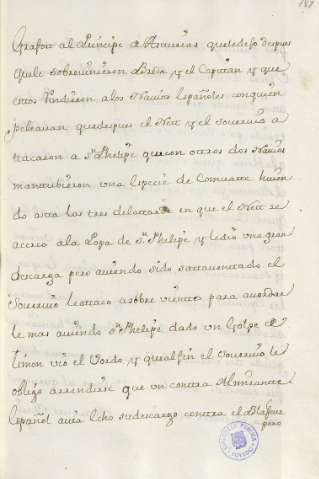 187
Grafort al Principe de Asturias que le dejo despues
que le sobrevinieron Breda, y el Capitan y que
estos Rindieron a los Navios españoles, con quien
peleavan que despues el Kent y el sovervio a
tacaron a Sn. Phelipe que con otros dos Navios
mantubieron una especie de Combate huien
do asta las tres de la tarde en que el Kent se
acerco a la Popa de Sn. Phelipe, y le dio una gran
descarga pero aviendo sido el
Sovervio le ataco a sobre viento para abordar
le mas aviendo Sn. Phelipe dado un Golpe de
timon viro el Vordo, y que al fin el Sovervio le
obligo a rendirse que un contra Almirante
español avia hecho su descarga contra el
BIBLIOTECA PUBLICA
TOLEDO